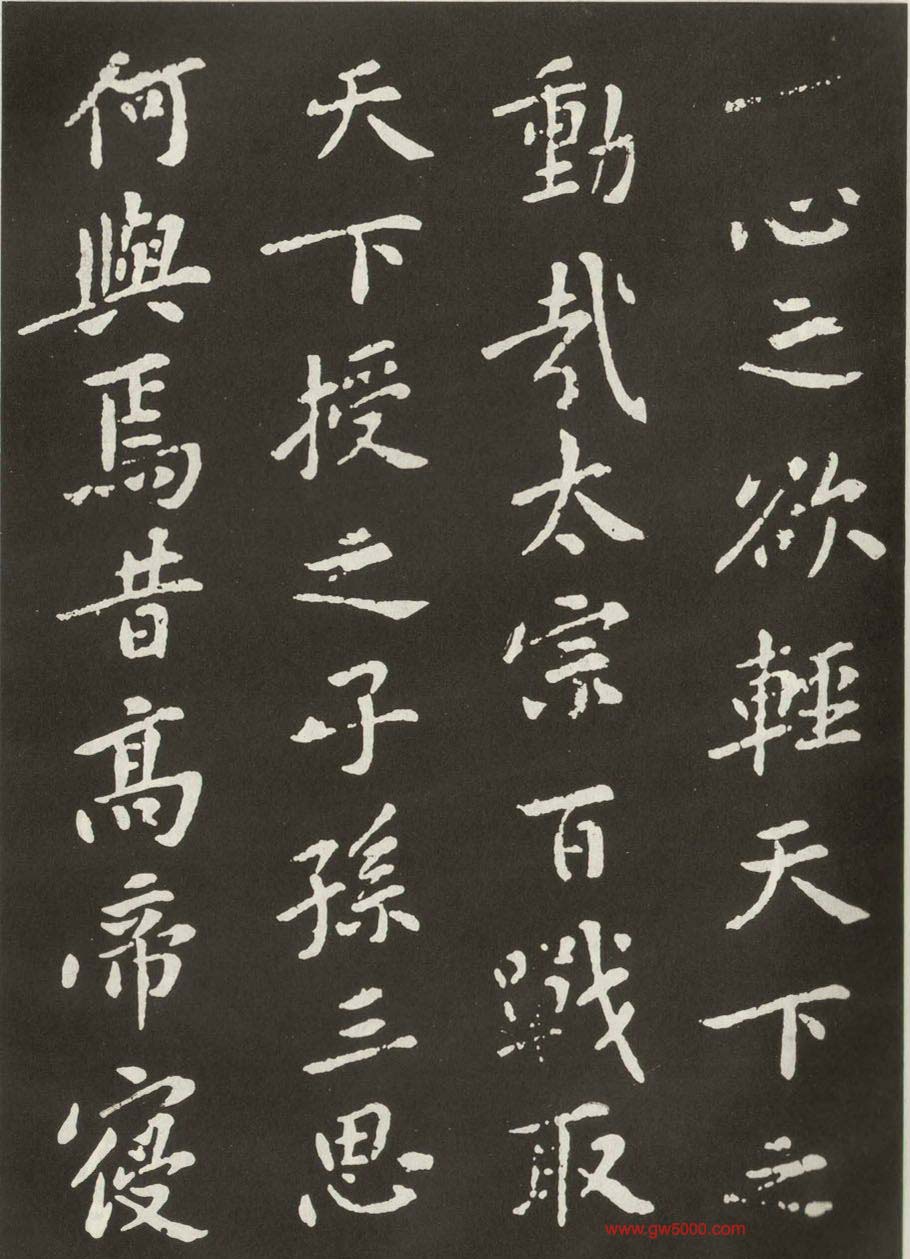 一心之欲輕天下之
動哉太宗百戰取
天下授之子孫三思
何與焉昔高帝寢
www.gw5000.com